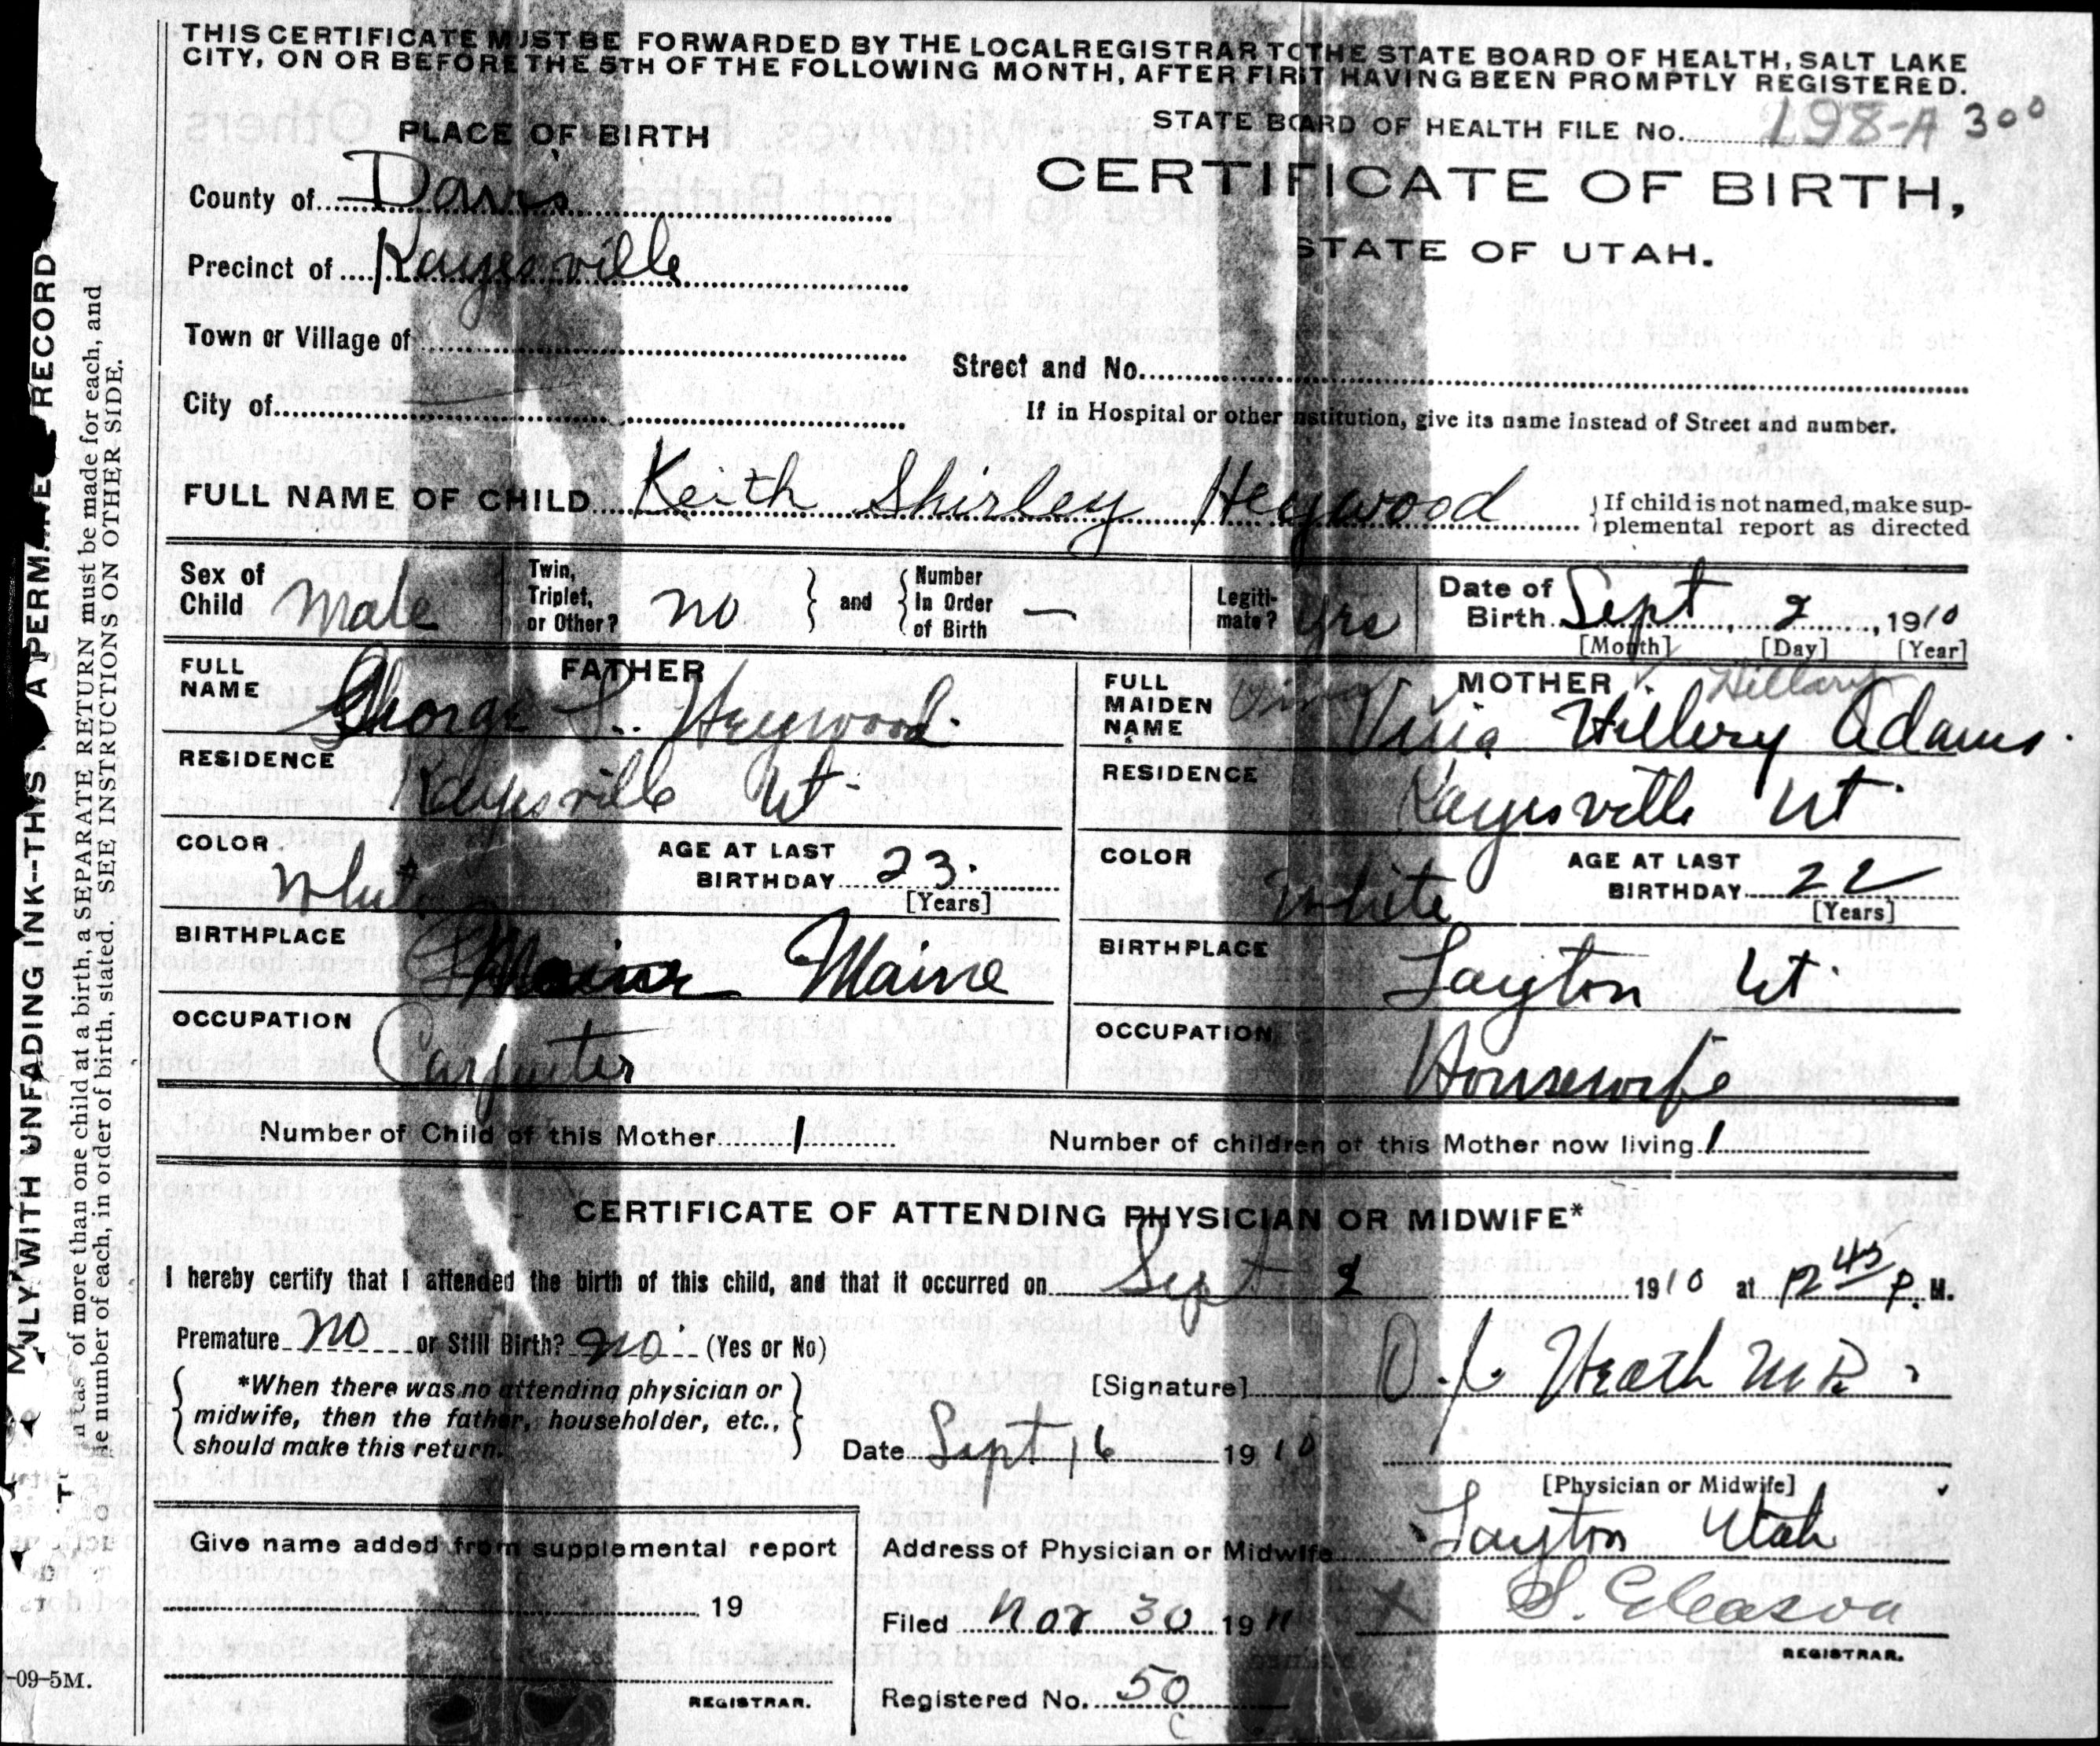 THIS CERTIFICATE MUST BE FORWARDED BY THE LOCAL REGISTRAR TO THE STATE BOARD OF HEALTH, SALT LAKE
CITY, ON OR BEFORE THE 5TH OF THE FOLLOWING MONTH, AFTER FIRST HAVING BEEN PROMPTLY REGISTERED.
STATE BOARD OF HEALTH FILE No. 198-A 300
PLACE OF BIRTH
CERTIFICATE OF BIRTH,
STATE OF UTAH.
County of Davis
Precinct of Kaysville
Town or Village of
Street and No.
City of
If in Hospital or other institution, give its name instead of Street and number.
FULL NAME OF CHILD Keith Shirley Heywood
If child is not named, make sup-
plemental report as directed
Sex of Child Male
Twin, Triplet, or Other? no and Number In Order of Birth —
Legiti-mate? yes
Date of Birth Sept 2, 1910
[Month] [Day] [Year]
FATHER
FULL NAME George L. Heywood.
RESIDENCE Kaysville Ut.
COLOR White
AGE AT LAST BIRTHDAY 23.
[Years]
BIRTHPLACE Maine Maine
OCCUPATION Carpenter
MOTHER Hillary
FULL MAIDEN NAME Hillery Adams.
RESIDENCE Kaysville Ut.
COLOR White
AGE AT LAST BIRTHDAY 22
[Years]
BIRTHPLACE Layton Ut.
OCCUPATION Housewife
Number of Child of this Mother 1
Number of children of this Mother now living 1
CERTIFICATE OF ATTENDING PHYSICIAN OR MIDWIFE*
I hereby certify that I attended the birth of this child, and that it occurred on Sept 2 1910 at 12 45 P. M.
Premature no or Still Birth? no (Yes or No)
*When there was no attending physician or
midwife, then the father, householder, etc.,
should make this return.
[Signature] Heath M.D.
Date Sept 16 1910
[Physician or Midwife]
Give name added from supplemental report
19
REGISTRAR.
Address of Physician or Midwife Layton Utah
Filed Nov 30 1911
X S. Gleason
REGISTRAR.
Registered No. 50
-09-5M.
WITH UNFADING INK--THIS A PERMANE RECORD
of more than one child at a birth, a SEPARATE RETURN must be made for each, and
number of each, in order of birth, stated. SEE INSTRUCTIONS ON OTHER SIDE.